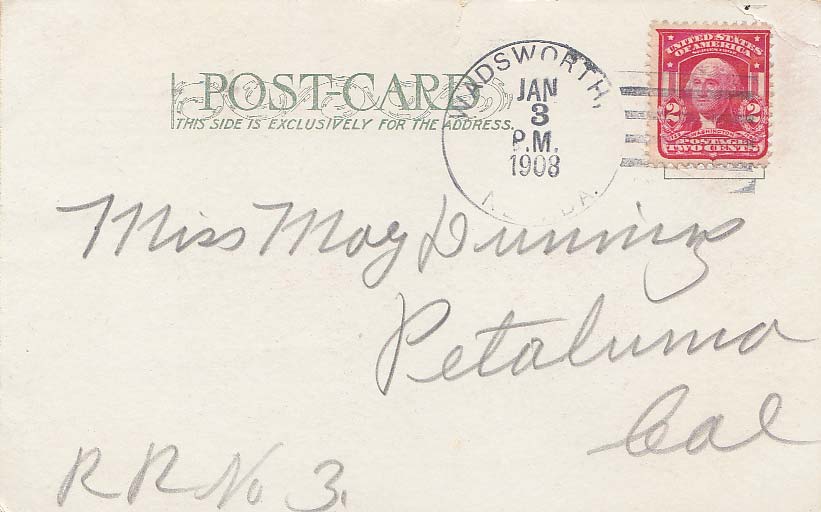 POST-CARD
THIS SIDE IS EXCLUSIVELY FOR THE ADDRESS.
WADSWORTH,
JAN
3
P.M.
1908
UNITED STATES
OF AMERICA
2 2
WASHINGTON
POSTAGE
TWO CENTS
Miss May
Petaluma
Cal
R R No 3.